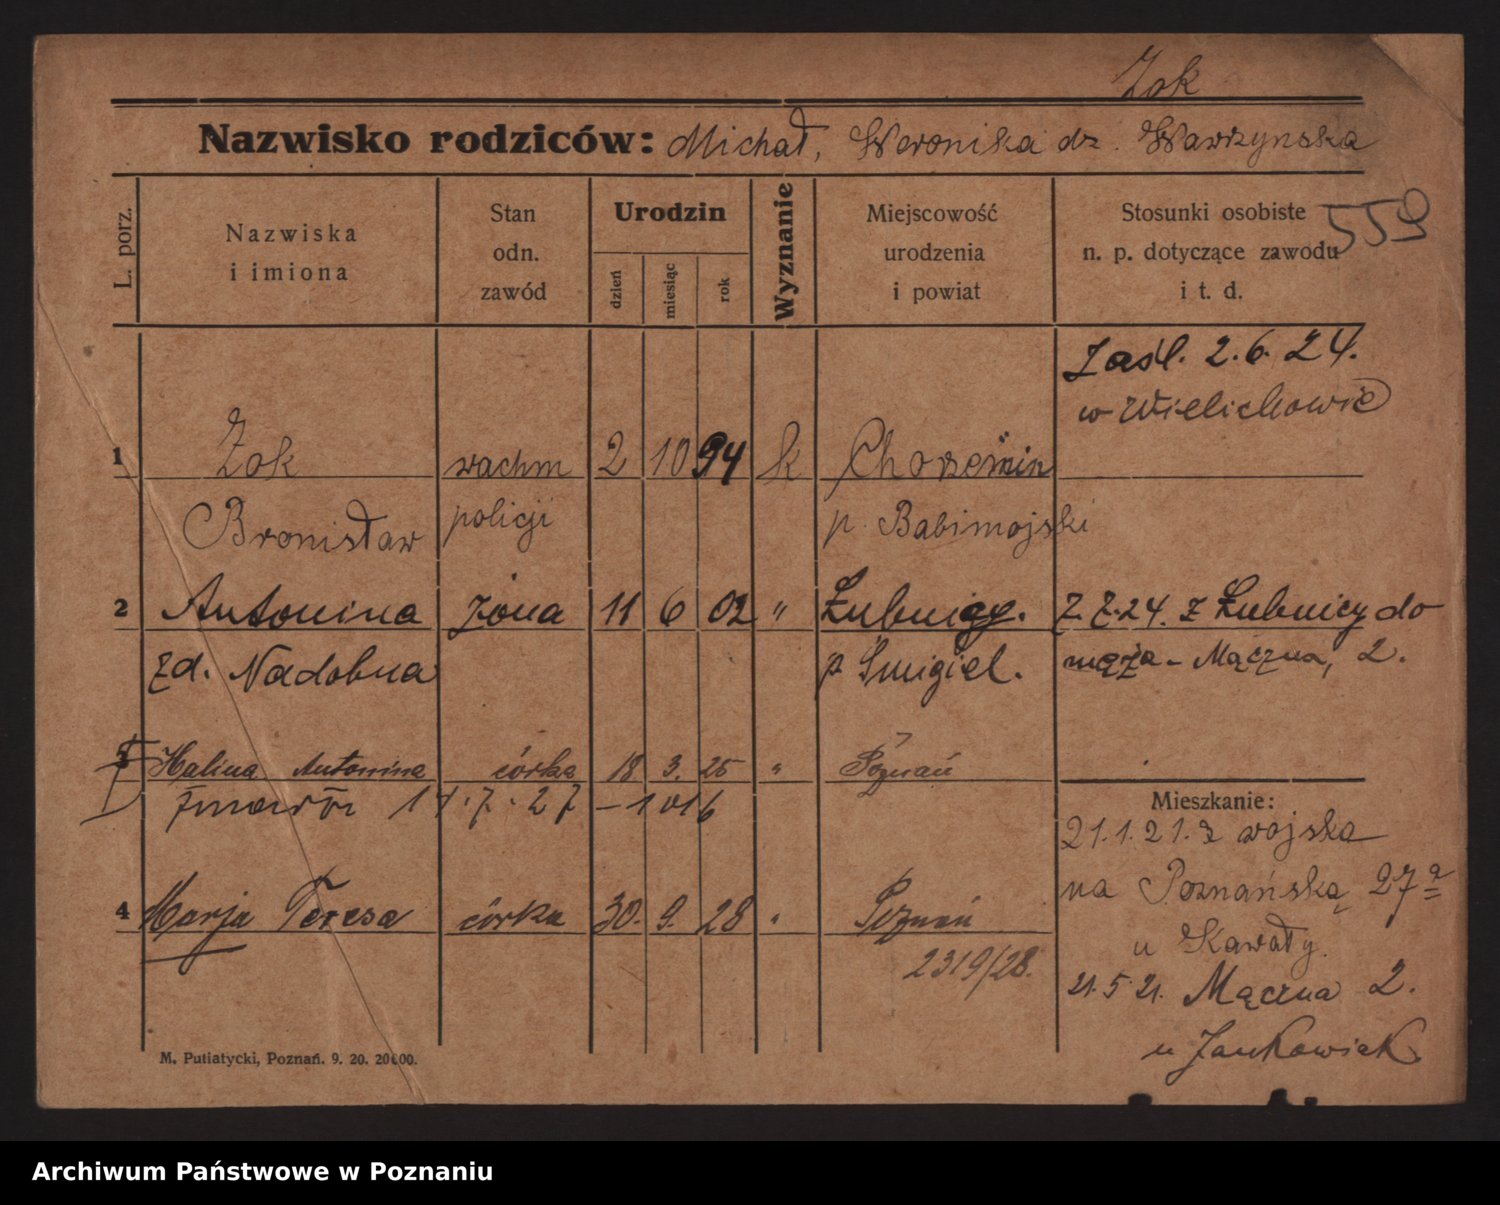 Żok
Nazwisko rodziców: Michał, Weronika dz. Wawrzynska
L. porz.
Nazwiska
i imiona
Stan
odn.
zawód
Urodzin
dzień
miesiąc
rok
Wyznanie
Miejscowość
urodzenia
i powiat
Stosunki osobiste
n. p. dotyczące zawodu
i t. d.
559
Zaśl. 2.6.24.
w Wielichowie
1 Żok wachm 2 10 94 k Chorzemin
Bronisław policji p. Babimojski
2 Antonina żona 11 6 02 " Łubnicy. 7.7.24. z Łubnicy do
zd. Nadobna p Śmigiel. męża - Mączna, 2.
3 Halina Antonina córka 18 3. 25 " Poznań
zmarła 17.7.27
Mieszkanie:
21.1.21. z wojska
na Poznańską 27a
u Kawały.
21.5 21. Mączna 2.
u Jankowiak
4 Marja Teresa córka 30. 9. 28 " Poznań
2319/28.
M. Putiatycki, Poznań. 9. 20. 20000.
Archiwum Państwowe w Poznaniu